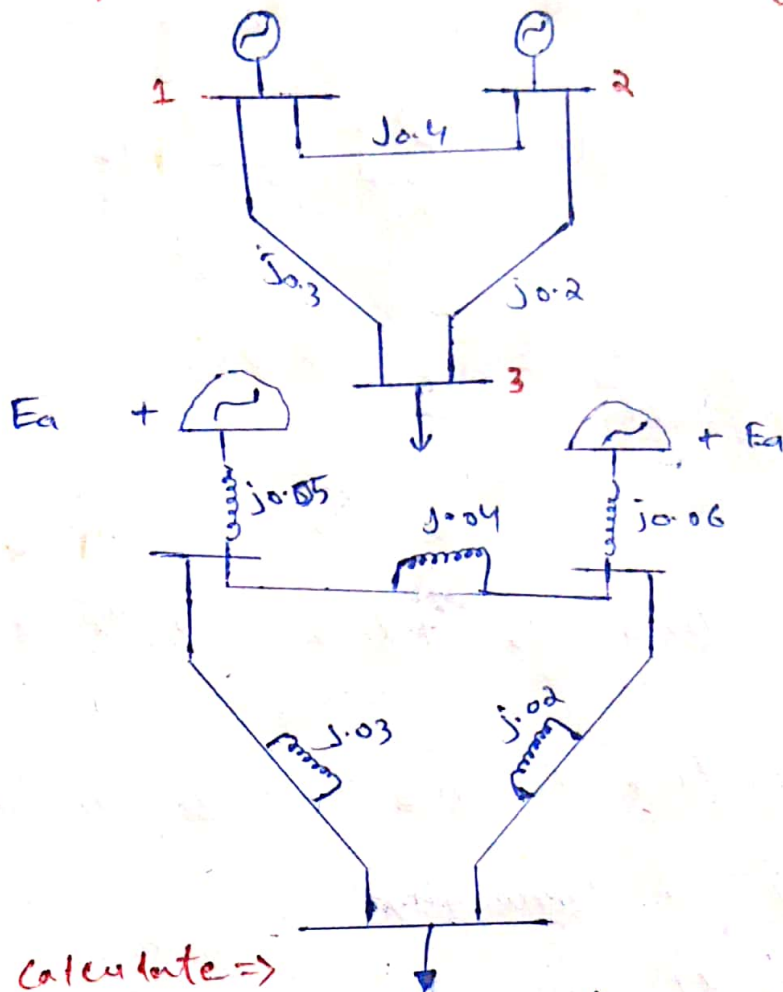 1
2
j0.4
j0.3
j0.2
3
Ea +
+ Ea
j0.05
j.04
j0.06
j.03
j.02
Calculate =>